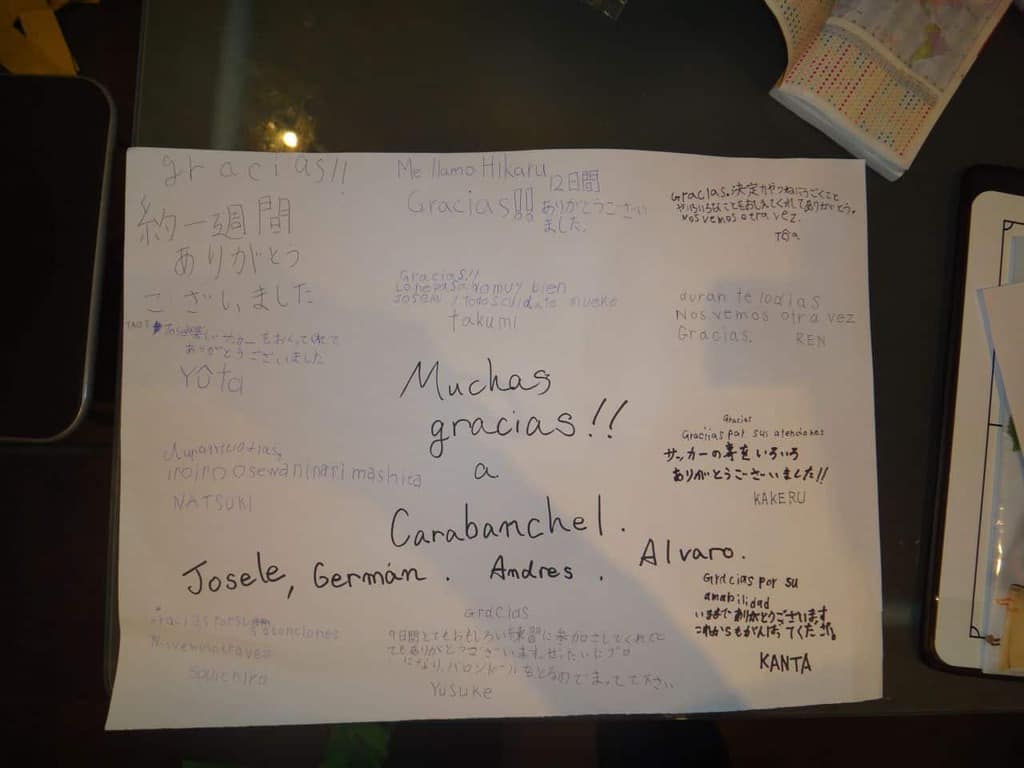 gracias!!
約一週間
ありがとう
ございました
Me llamo Hikaru
Gracias!!
12日間
ありがとうござい
ました.
Gracias. 決定力やつねにうごくこと
やいろいろなことをおしえてくれてありがとう。
Nos vemos otra vez.
Toa
Gracias!!
Lo he pasado muy bien
takumi
duran te lo dias
Nos vemos otra vez
Gracias. REN
サッカーをおしえてくれて
ありがとうございました
Yota
Muchas
gracias!!
a
Carabanchel.
Josele, Germán. Andres. Alvaro.
Gracias
Graciias por sus atenciones
サッカーの事をいろいろ
ありがとうございました!!
KAKERU
iroiro Osewaninari mashita
NATSUKI
Gracias por su
amabilidad
いままでありがとうございます
これからもがんばってください。
KANTA
atenciones
Souichiro
Gracias
9日間とてもおもしろい練習に参加させてくれて
とてもありがとうございます。ぜったいにプロ
になり、バロンドールをとるのでまってて下さい
Yusuke